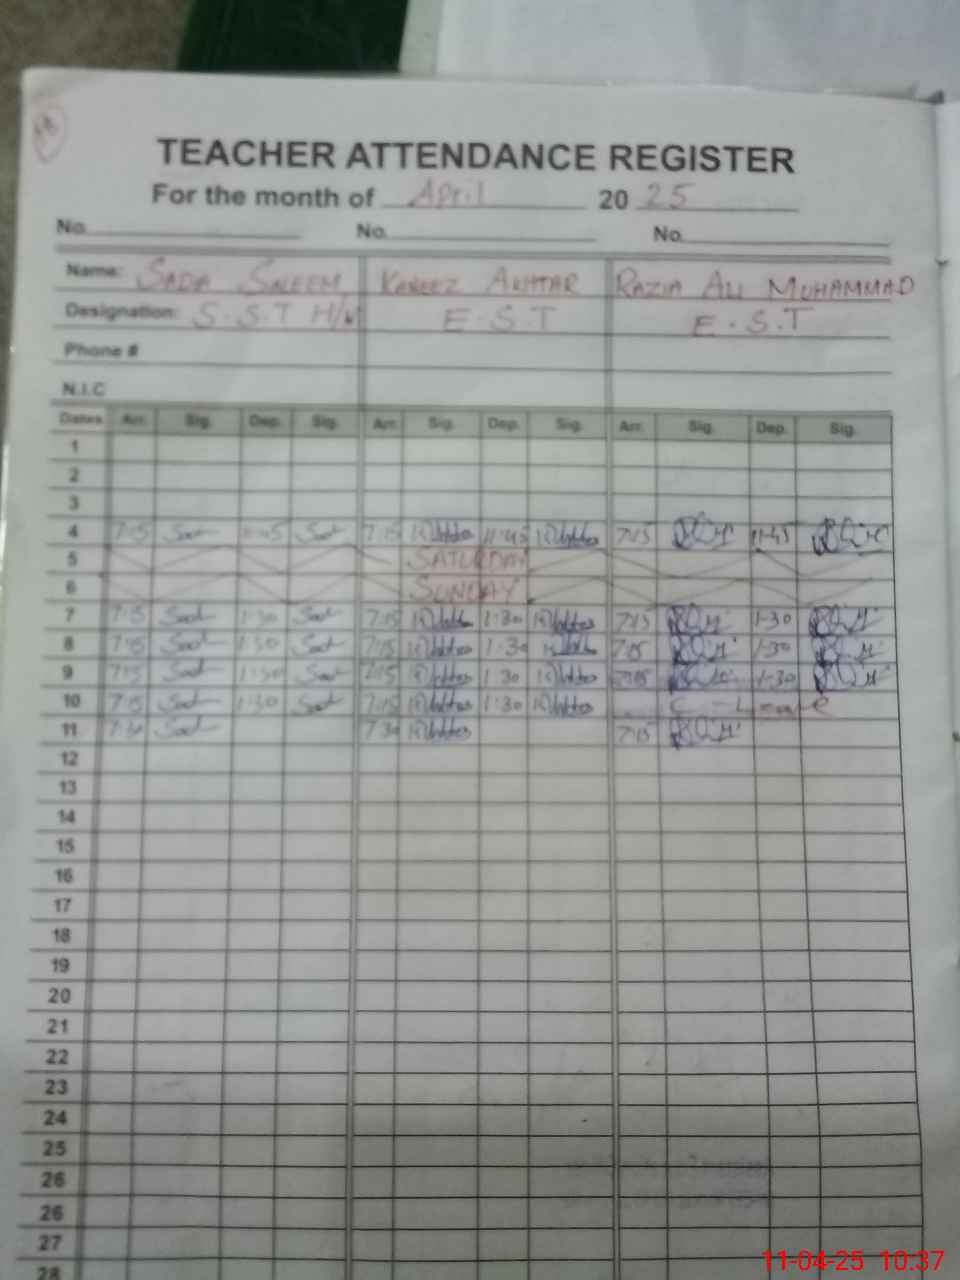 TEACHER ATTENDANCE REGISTER
For the month of April 2025
No. No. No.
Name: SADA SALEEM KANEEZ AKHTAR RAZIA ALI MUHAMMAD
Designation: S.S.T H/M E.S.T E.S.T
Phone #
N.I.C
Dates Arr. Sig. Dep. Sig. Arr. Sig. Dep. Sig. Arr. Sig. Dep. Sig.
1
2
3
4 7:15 11:45 7:15 11:45 7:15 11:45
5 SATURDAY
6 SUNDAY
7 7:15 1:30 7:15 1:30 7:15 1:30
8 7:15 1:30 7:15 1:30 7:15 1:30
9 7:15 1:30 7:15 1:30 7:15 1:30
10 7:15 1:30 7:15 1:30 C-Leave
11 7:30 7:30 7:15
12
13
14
15
16
17
18
19
20
21
22
23
24
25
26
26
27
28
11-04-25 10:37